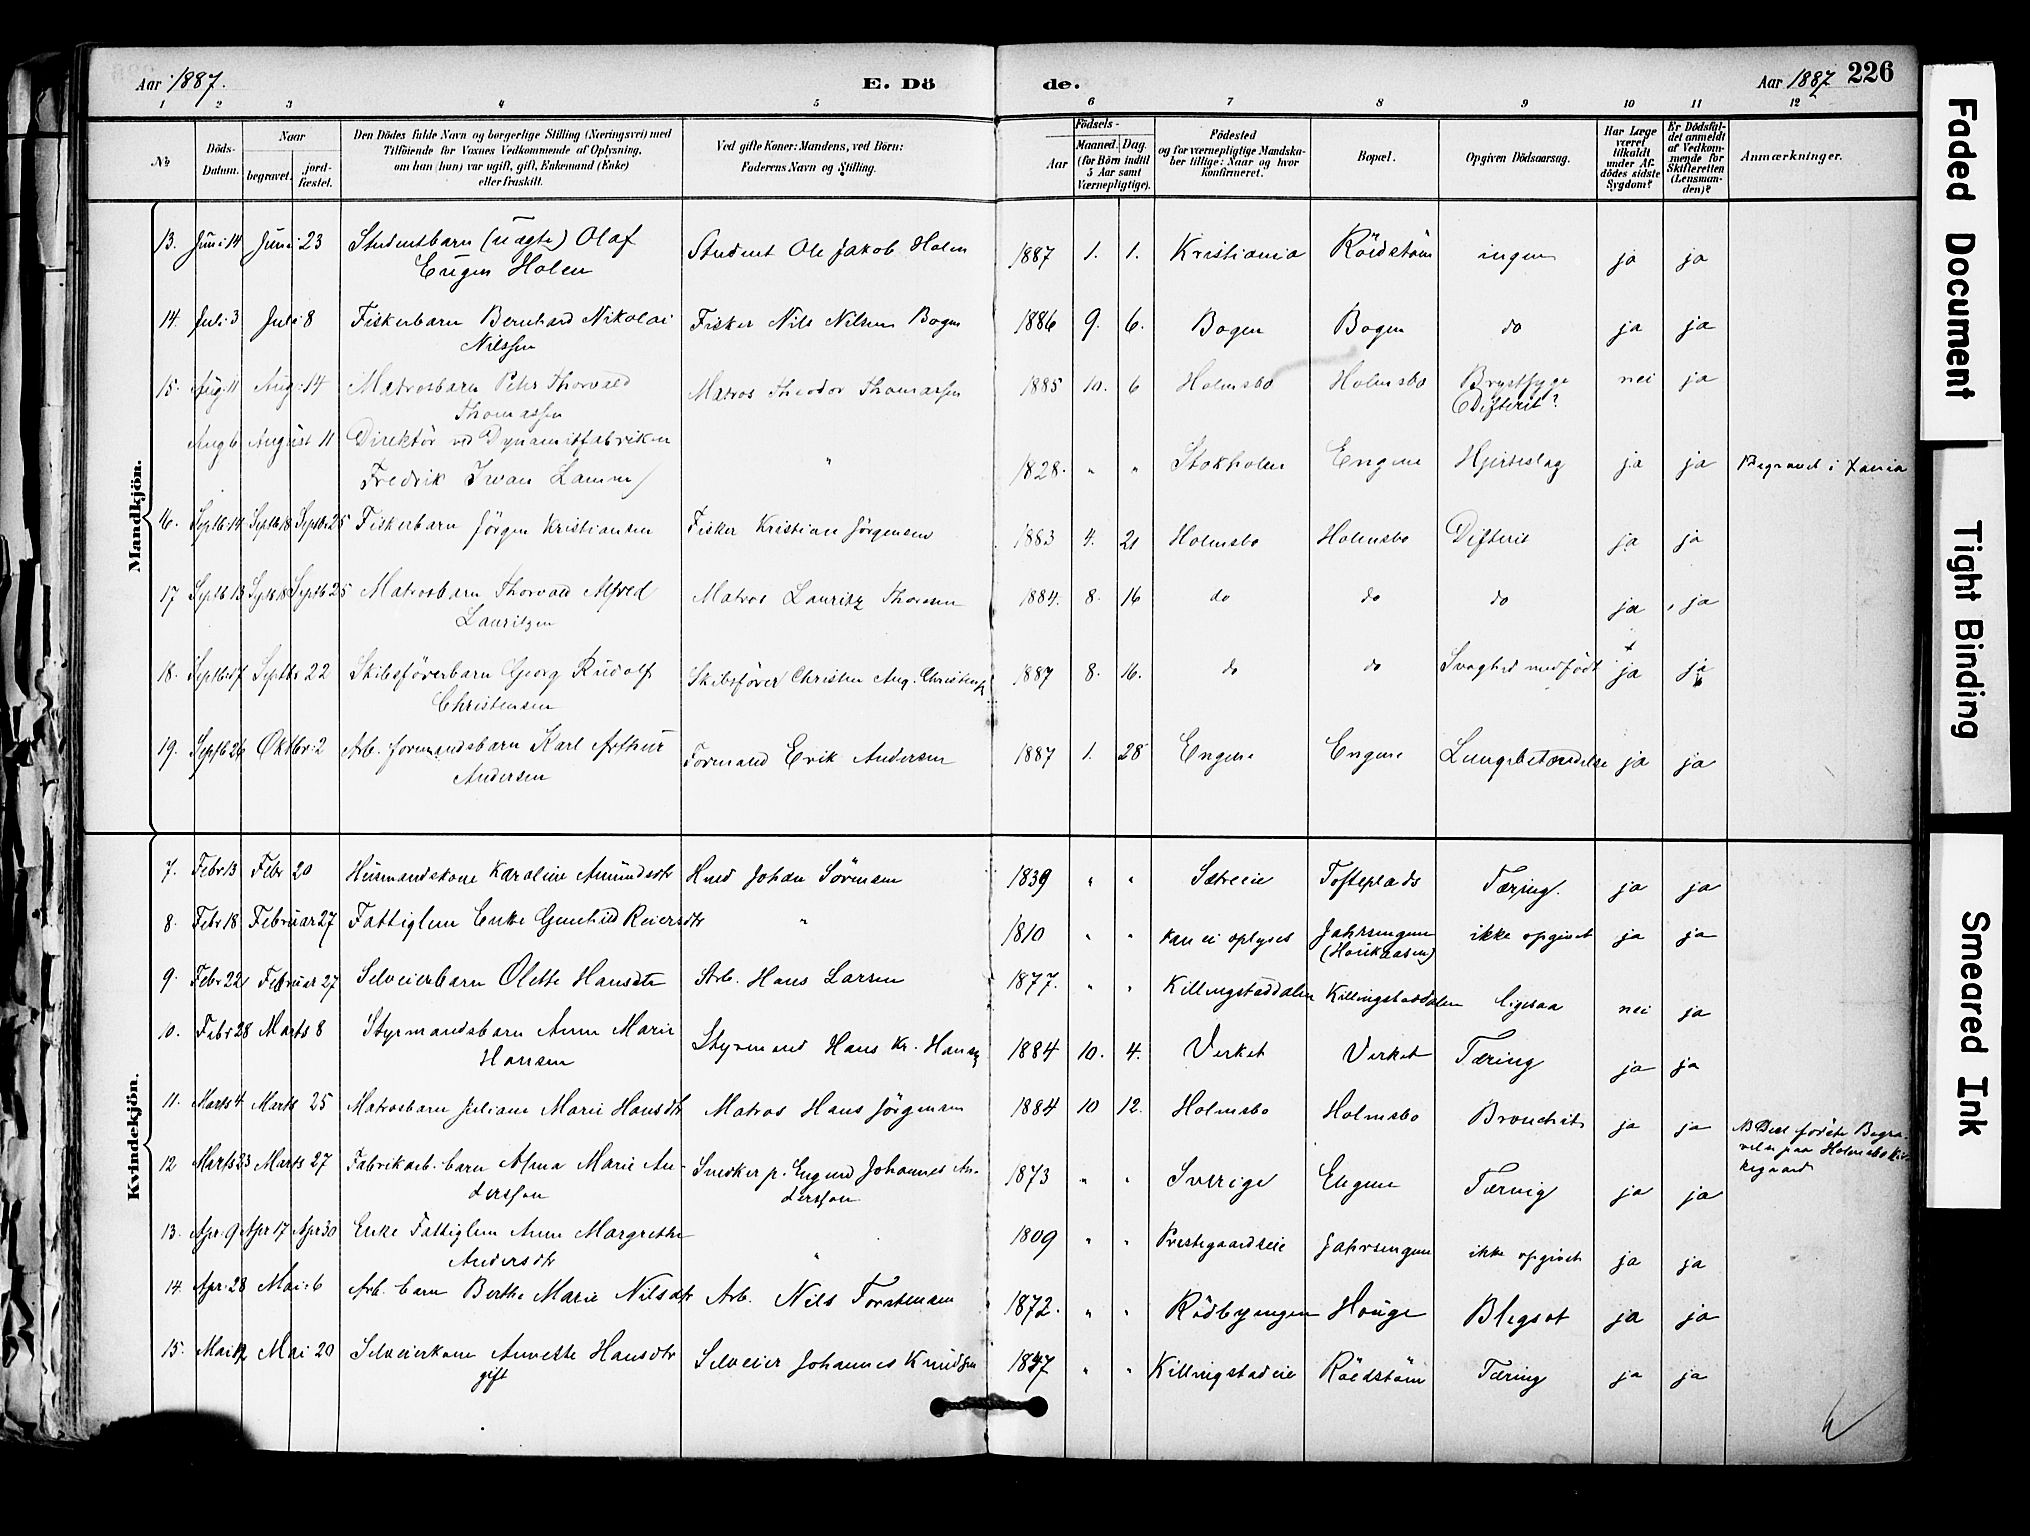 Aar 1887.
E. Dö de.
Aar 1887 226
1 2 3 4 5 6 7 8 9 10 11 12
No
Döds-Datum.
Naar
begravet.
jord-fæstet.
Den Dödes fulde Navn og borgerlige Stilling (Næringsvei) med
Tilföiende for Voxnes Vedkommende af Oplysning,
om han (hun) var ugift, gift, Enkemand (Enke)
eller fraskilt.
Ved gifte Koner: Mandens, ved Börn:
Faderens Navn og Stilling.
Födsels-
Aar
Maaned. Dag.
(for Börn indtil
5 Aar samt
Værnepligtige).
Födested
og for værnepligtige Mandska-
ber tillige: Naar og hvor
konfirmeret.
Bopæl.
Opgiven Dödsaarsag.
Har Læge
været
tilkaldt
under Af-
dödes sidste
Sygdom?
Er Dödsfal-
det anmeldt
af Vedkom-
mende for
Skifteretten
(Lensman-
den)?
Anmærkninger.
Mandkjön.
13. Juni 14 Juni 23 Studentbarn (uægte) Olaf Student Ole Jakob Holen 1887 1. 1. Kristiania Röidstöm ingen ja ja
Eugen Holen
14. Juli 3 Juli 8 Fiskerbarn Bernhard Nikolai Fisker Nils Nilsen Bogen 1886 9. 6. Bogen Bogen do ja ja
Nilssen
15. Aug. 11 Aug. 14 Matrosbarn Peter Thorvald Matros Theodor Thomassen 1885 10. 6 Holmsbo Holmsbo Brystsyge nei ja
Thomassen Difterit?
Aug 6 August 11 Direktör ved Dynamitfabriken
Fredrik Iwan Lamm " 1828. " " Stokholm Engene Hjerteslag ja ja Begravet i Xania
16. Septb. 14 Septb. 18 Septbr 25 Fiskerbarn Jörgen Kristiansen Fisker Kristian Jörgensen 1883 4. 21 Holmsbo Holmsbo Difterit ja ja
17 Septb 13 Septb 18 Septb 25 Matrosbarn Thorvald Alfred Matros Lauritz Thoresen 1884. 8. 16 do do do ja ja
Lauritzen
18. Septbr 17 Septbr 22 Skibsförerbarn Georg Rudolf Skibsförer Christen Aug. Christensen 1887 8. 16. do do Svaghed medfödt ja ja
Christensen
19. Septb 26 Oktbr. 2 Arb. formandsbarn Karl Arthur Formand Erik Andersen 1887 1. 28 Engene Engene Lungebetændelse ja ja
Andersen
Kvindekjön.
7. Febr 13 Febr 20 Husmandskone Karoline Amundsdtr Hmd Johan Sörensen 1839 " " Sætreeie Tofteplads Tæring. ja ja
8. Febr 18 Februar 27 Fattiglem Enke Gunhild Reiersdtr " 1810 " " kan ei oplyses Jahrsengene ikke opgivet ja ja
9. Febr 22 Februar 27 Selveierbarn Olette Hansdtr Arb. Hans Larsen 1877. " " Killingstaddalen Killingstaddalen ligesaa nei ja
10. Febr 28 Marts 8 Styrmandsbarn Anne Marie Styrmand Hans Kr. Hansen 1884 10. 4. Verket Verket Tæring ja ja
Hansen
11. Marts 4 Marts 25 Matrosbarn Juliane Marie Hansdtr Matros Hans Jörgensen 1884 10 12. Holmsbo Holmsbo Bronchit ja ja NB Den förste Begra-
velse paa Holmsbo Kir-
kegaard
12 Marts 23 Marts 27 Fabrikarb. barn Alma Marie An- Snedker p. Engene Johannes An- 1873 " " Sverige Engene Tæring ja ja
dersson dersson
13. Apr. 9 Apr 17 Apr 30 Enke Fattiglem Anne Margrethe " 1809 " " Prestegaardseie Jahrsengene ikke opgivet ja ja
Andersdtr
14. Apr. 28 Mai 6 Arb. barn Berthe Marie Nilsdtr Arb. Nils Torstensen 1872. " " Rödbyengen Houge Blegsot ja ja
15. Mai 12 Mai 20 Selveierkone Annette Hansdtr Selveier Johannes Knudsen 1847 " " Killingstadeie Röedstöm Tæring ja ja
gift
Faded Document
Tight Binding
Smeared Ink